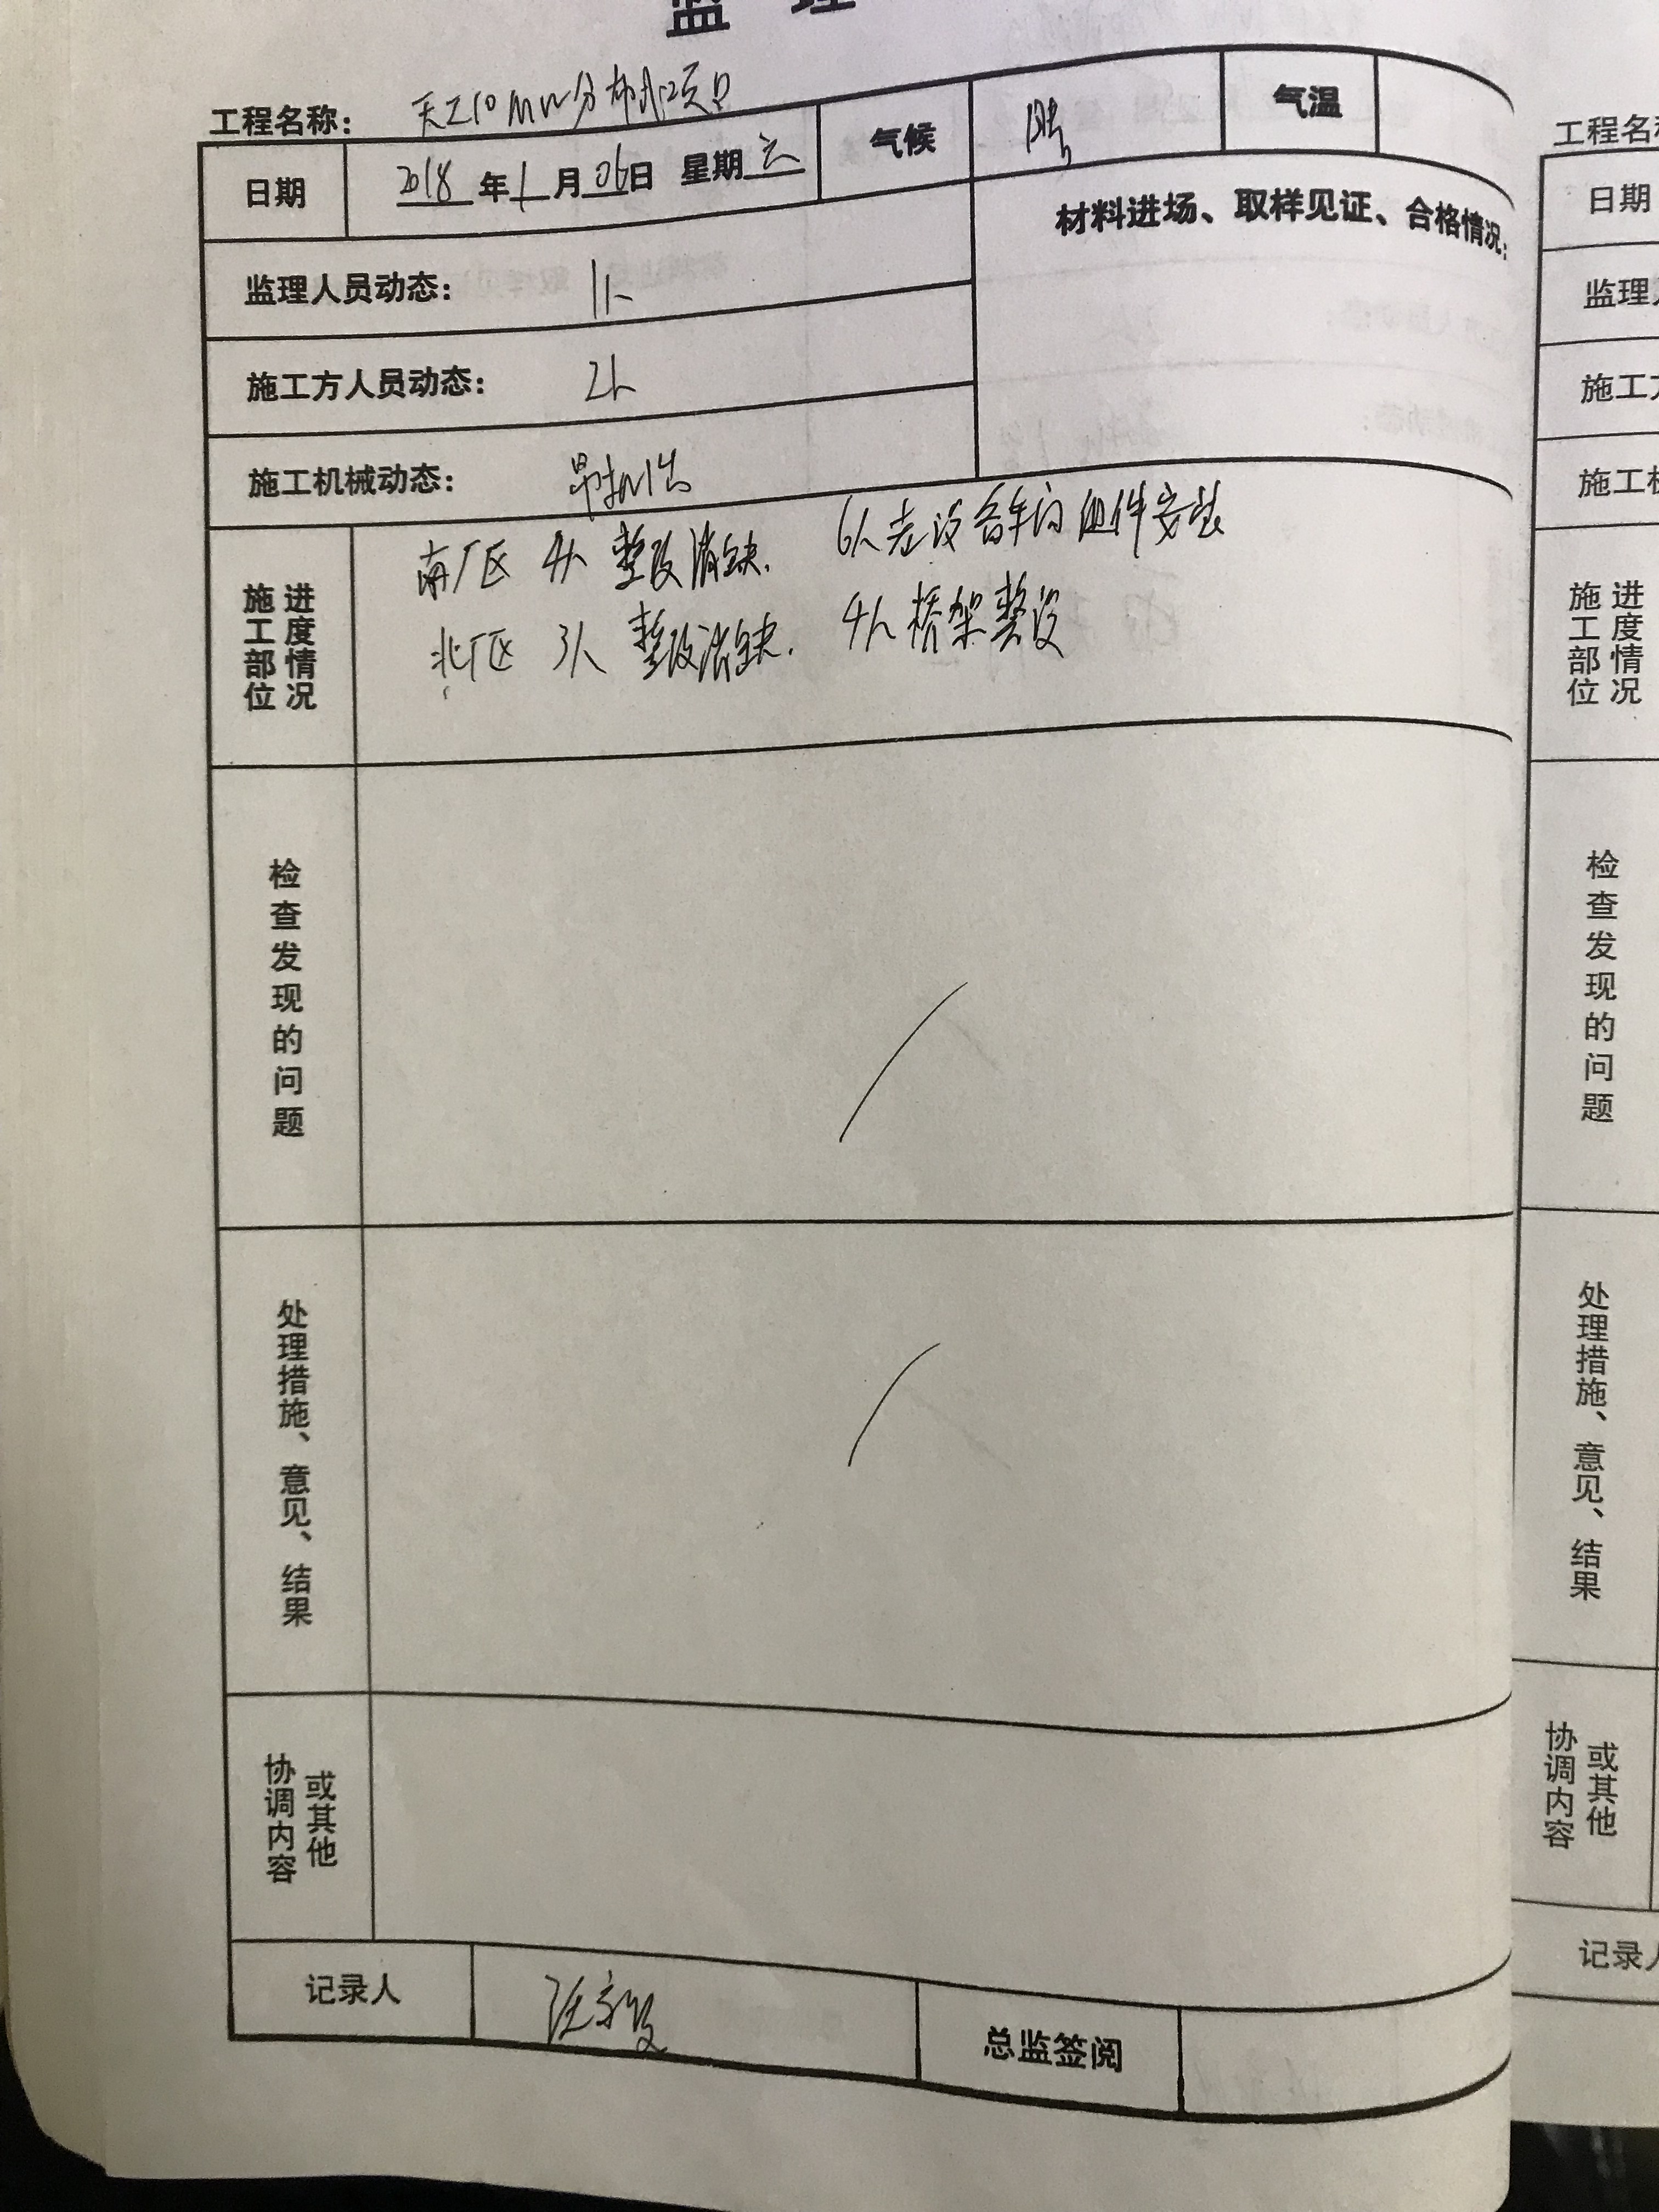 监 理
工程名称： 天工10MW分布式项目
日期 2018 年 1 月 06 日 星期 六 气候 阴 气温
监理人员动态： 1人
材料进场、取样见证、合格情况：
施工方人员动态： 2人
施工机械动态： 吊机1台
施工部位 进度情况
南厂区 4人 整改消缺. 6人 设备车间 组件安装
北厂区 3人 整改消缺. 4人 桥架整设
检查发现的问题
处理措施、意见、结果
协调内容 或其他
记录人
总监签阅
工程名
日期
监理
施工
施工
施工部位 进度情况
检查发现的问题
处理措施、意见、结果
协调内容 或其他
记录